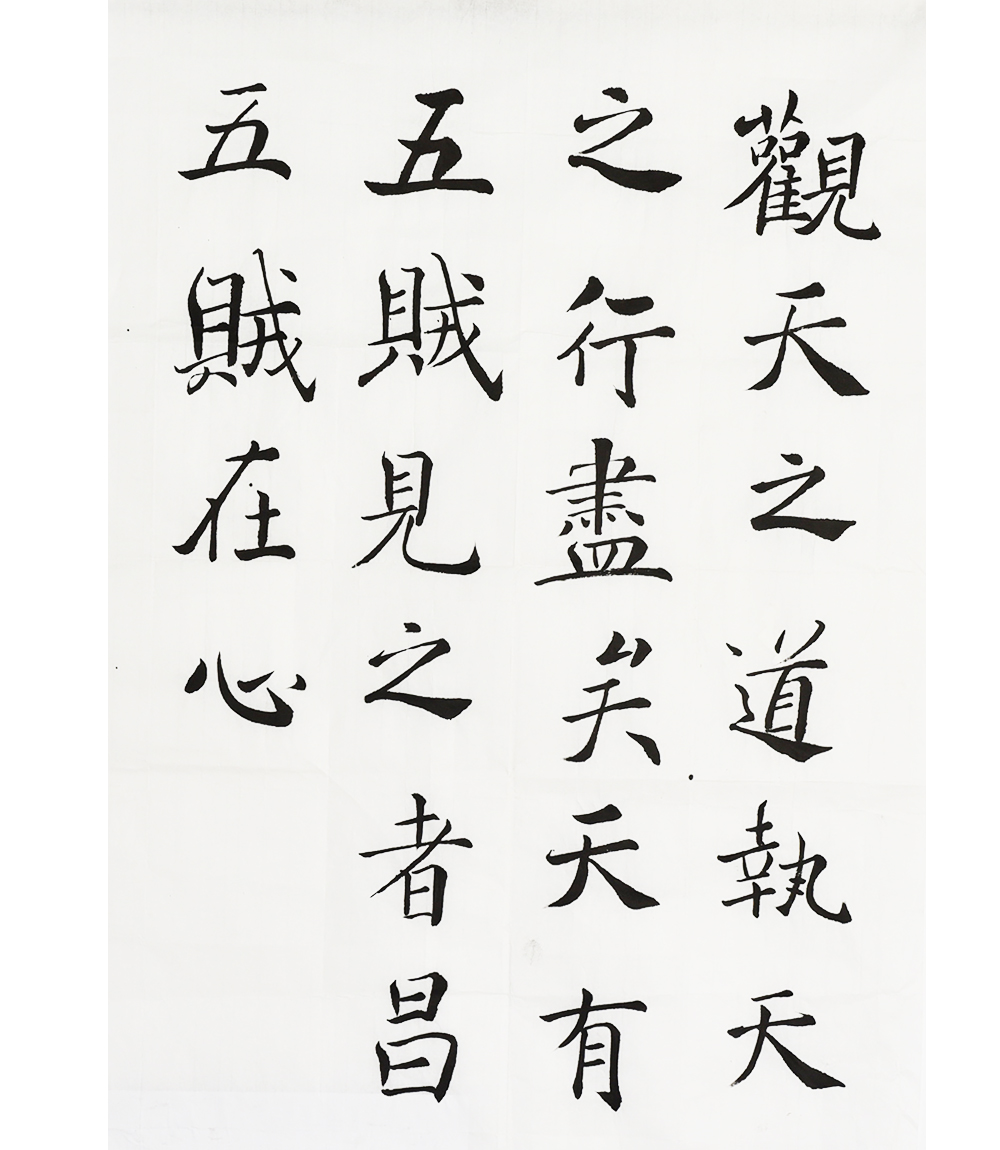 觀天之道執天
之行盡矣天有
五賊見之者昌
五賊在心